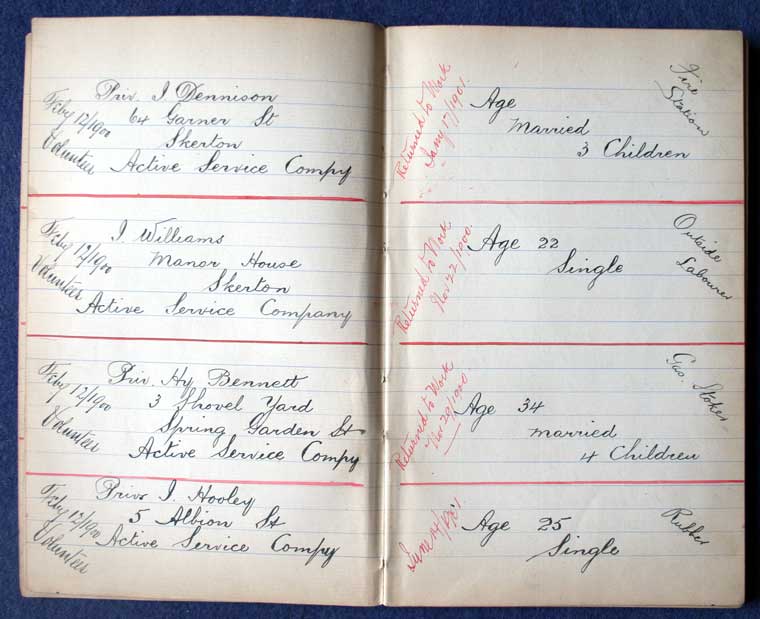 Feby 12/1900
Volunteer
Priv. J Dennison
64 Garner St
Skerton
Active Service Compy
Returned to Work
Jany 17/1901
Age
Married
3 Children
Fire
Station
Feby 12/1900
Volunteer
J. Williams
Manor House
Skerton
Active Service Company
Returned to Work
Nov 22/1900
Age 22
Single
Outside
Labourer
Feby 12/1900
Volunteer
Priv. Hy Bennett
3 Shovel Yard
Spring Garden St
Active Service Compy
Returned to Work
Nov 29/1900
Age 34
Married
4 Children
Gas. Stoker
Feby 12/1900
Volunteer
Priv J. Hooley
5 Albion St
Active Service Compy
June
Age 25
Single
Rubber